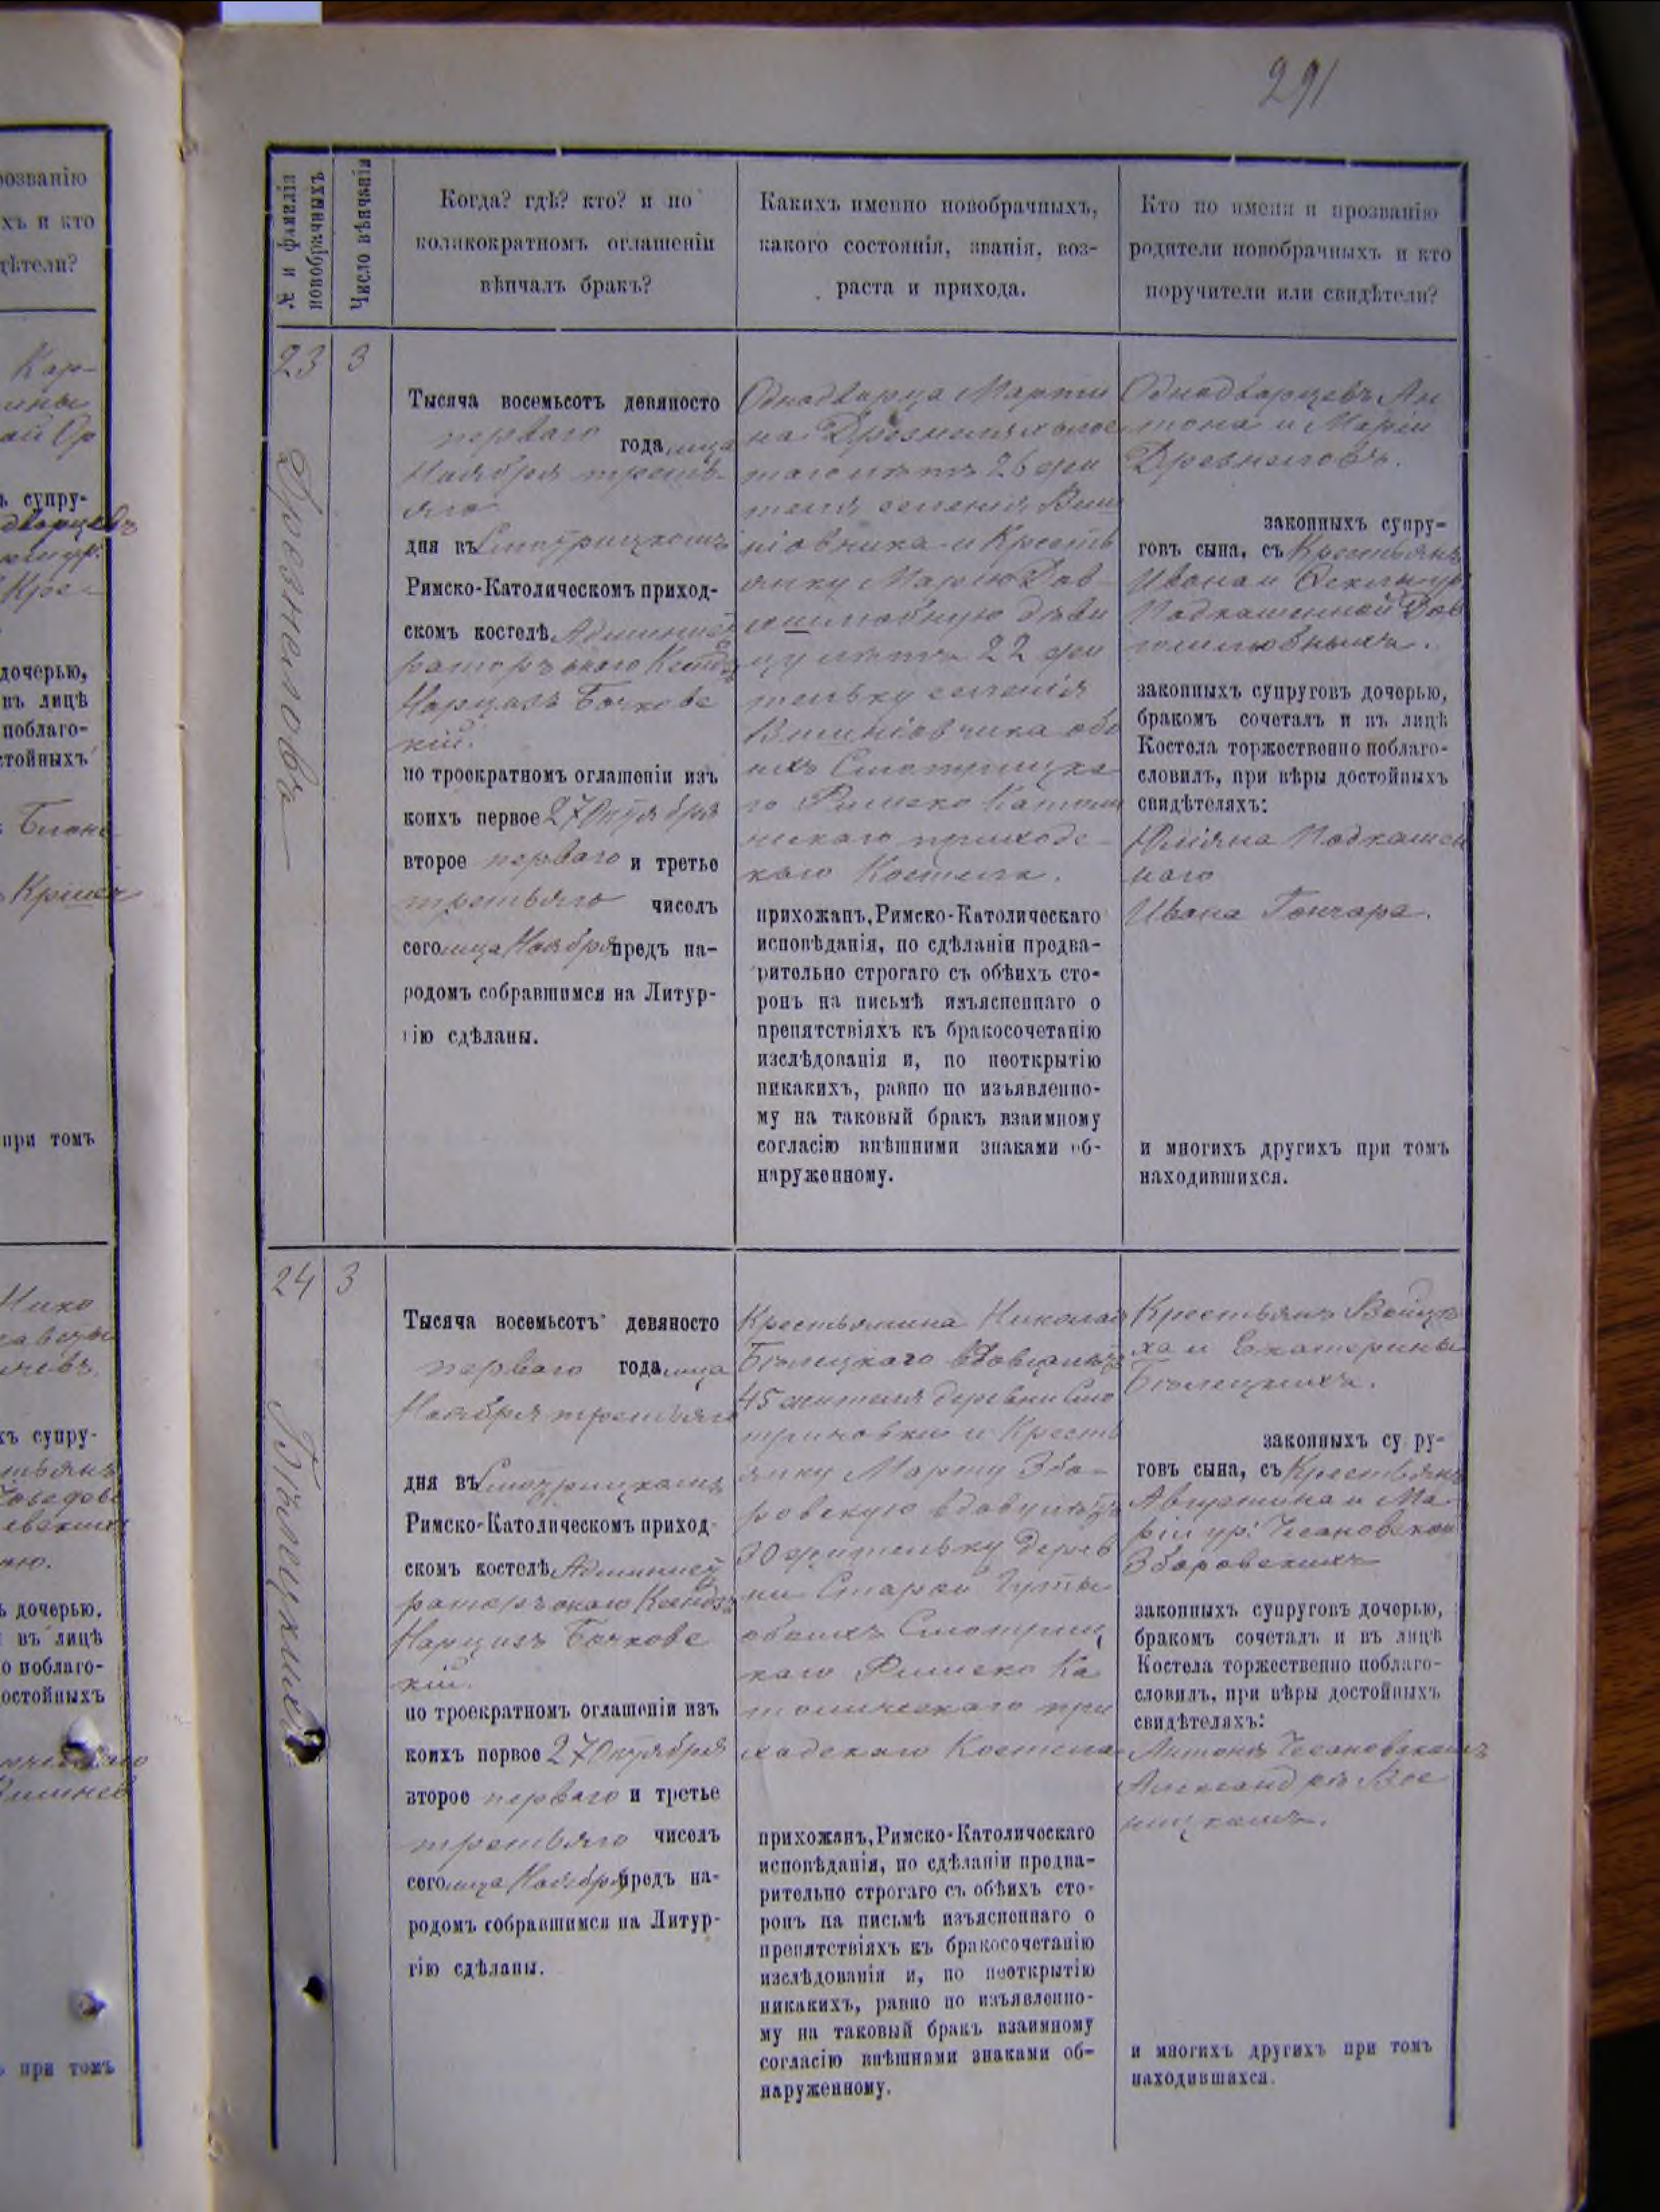 291
№ и фамилія новобрачныхъ
Число вѣнчанія
Когда? гдѣ? кто? и по
коликократномъ оглашеніи
вѣнчалъ бракъ?
Какихъ именно новобрачныхъ,
какого состоянія, званія, воз-
раста и прихода.
Кто по имени и прозванію
родители новобрачныхъ и кто
поручители или свидѣтели?
23
3
Тысяча восемьсотъ девяносто
перваго года мца
Ноября треть-
яго
дня въ Смотрицкомъ
Римско-Католическомъ приход-
скомъ костелѣ Админист
раторъ оного Ксендзъ
Нарцизъ Бочковс
кій.
по троекратномъ оглашеніи изъ
коихъ первое 27 Октября
второе перваго и третье
третьяго чиселъ
сего мца Ноября предъ на-
родомъ собравшимся на Литур-
гію сдѣланы.
Однодворца Марти
на холос
таго лѣтъ 26 жи
теля селенія Виш
ніовчика и Кресть
янку Марію Дов
дѣви
цу лѣтъ 22 жи
тельку селенія
Вишніовчика обо
ихъ Смотрицка
го Римско Катол
ическаго приходс-
каго Костела.
прихожанъ, Римско-Католическаго
исповѣданія, по сдѣланіи предва-
рительно строгаго съ обѣихъ сто-
ронъ на письмѣ изъясненнаго о
препятствіяхъ къ бракосочетанію
изслѣдованія и, по неоткрытію
никакихъ, равно по изъявленно-
му на таковый бракъ взаимному
согласію внѣшними знаками об-
наруженному.
Однодворцевъ Ан
тона и Маріи
законныхъ супру-
говъ сына, съ Крестьянъ
Ивана и Феклы ур.
Подкаменной Дов
законныхъ супруговъ дочерью,
бракомъ сочеталъ и въ лицѣ
Костела торжественно поблаго-
словилъ, при вѣры достойныхъ
свидѣтеляхъ:
Юліяна Подкамен
наго
Ивана Гончара.
и многихъ другихъ при томъ
находившихся.
24
3
Бѣлецкихъ
Тысяча восемьсотъ девяносто
перваго года мца
Ноября третьяго
дня въ Смотрицкомъ
Римско-Католическомъ приход-
скомъ костелѣ Админист
раторъ оного Ксендзъ
Нарцизъ Бочковс
кій.
по троекратномъ оглашеніи изъ
коихъ первое 27 Октября
второе перваго и третье
третьяго чиселъ
сего мца Ноября предъ на-
родомъ собравшимся на Литур-
гію сдѣланы.
Крестьянина Николая
Бѣлецкаго вдовца лѣтъ
45 жителя деревни Смо
тричовки и Кресть
янку Марту Зба-
ровскую вдову лѣтъ
30 жительку дерев
ни Старой Гуты
обоихъ Смотриц
каго Римско Ка
толическаго при
ходскаго Костела
прихожанъ, Римско-Католическаго
исповѣданія, по сдѣланіи предва-
рительно строгаго съ обѣихъ сто-
ронъ на письмѣ изъясненнаго о
препятствіяхъ къ бракосочетанію
изслѣдованія и, по неоткрытію
никакихъ, равно по изъявленно-
му на таковый бракъ взаимному
согласію внѣшними знаками об-
наруженному.
Крестьянъ Войцѣ
ха и Екатерины
Бѣлецкихъ.
законныхъ супру-
говъ сына, съ Крестьянъ
Августина и Ма-
ріи ур. Чесановской
Збаровскихъ
законныхъ супруговъ дочерью,
бракомъ сочеталъ и въ лицѣ
Костела торжественно поблаго-
словилъ, при вѣры достойныхъ
свидѣтеляхъ:
Антонѣ Чесановскомъ
Александрѣ
и многихъ другихъ при томъ
находившихся.